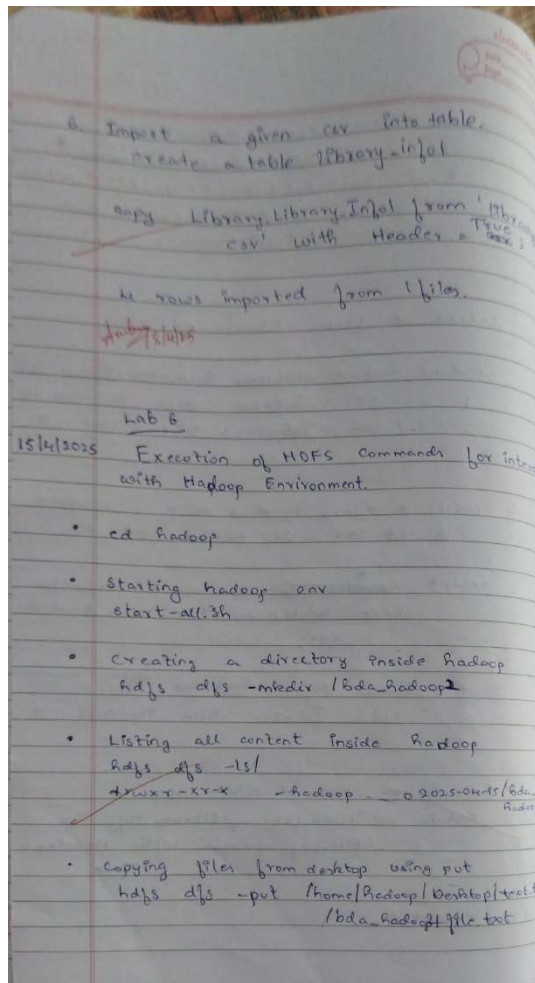 6. Import a given csv into table.
create a table library-info1
copy Library.Library_Info1 from 'library
csv' with Header = True ;
4 rows imported from 1 files.
15/4/25
Lab 6
15/4/2025
Execution of HDFS Commands for inter
with Hadoop Environment.
• cd hadoop
• starting hadoop env
start-all.sh
• creating a directory inside hadoop
hdfs dfs -mkdir /bda_hadoop2
• Listing all content inside hadoop
hdfs dfs -ls/
drwxr-xr-x - hadoop 0 2025-04-15/bda_
hadoo
• copying files from desktop using put
hdfs dfs -put /home/hadoop/Desktop/text
/bda_hadoop2/file.txt